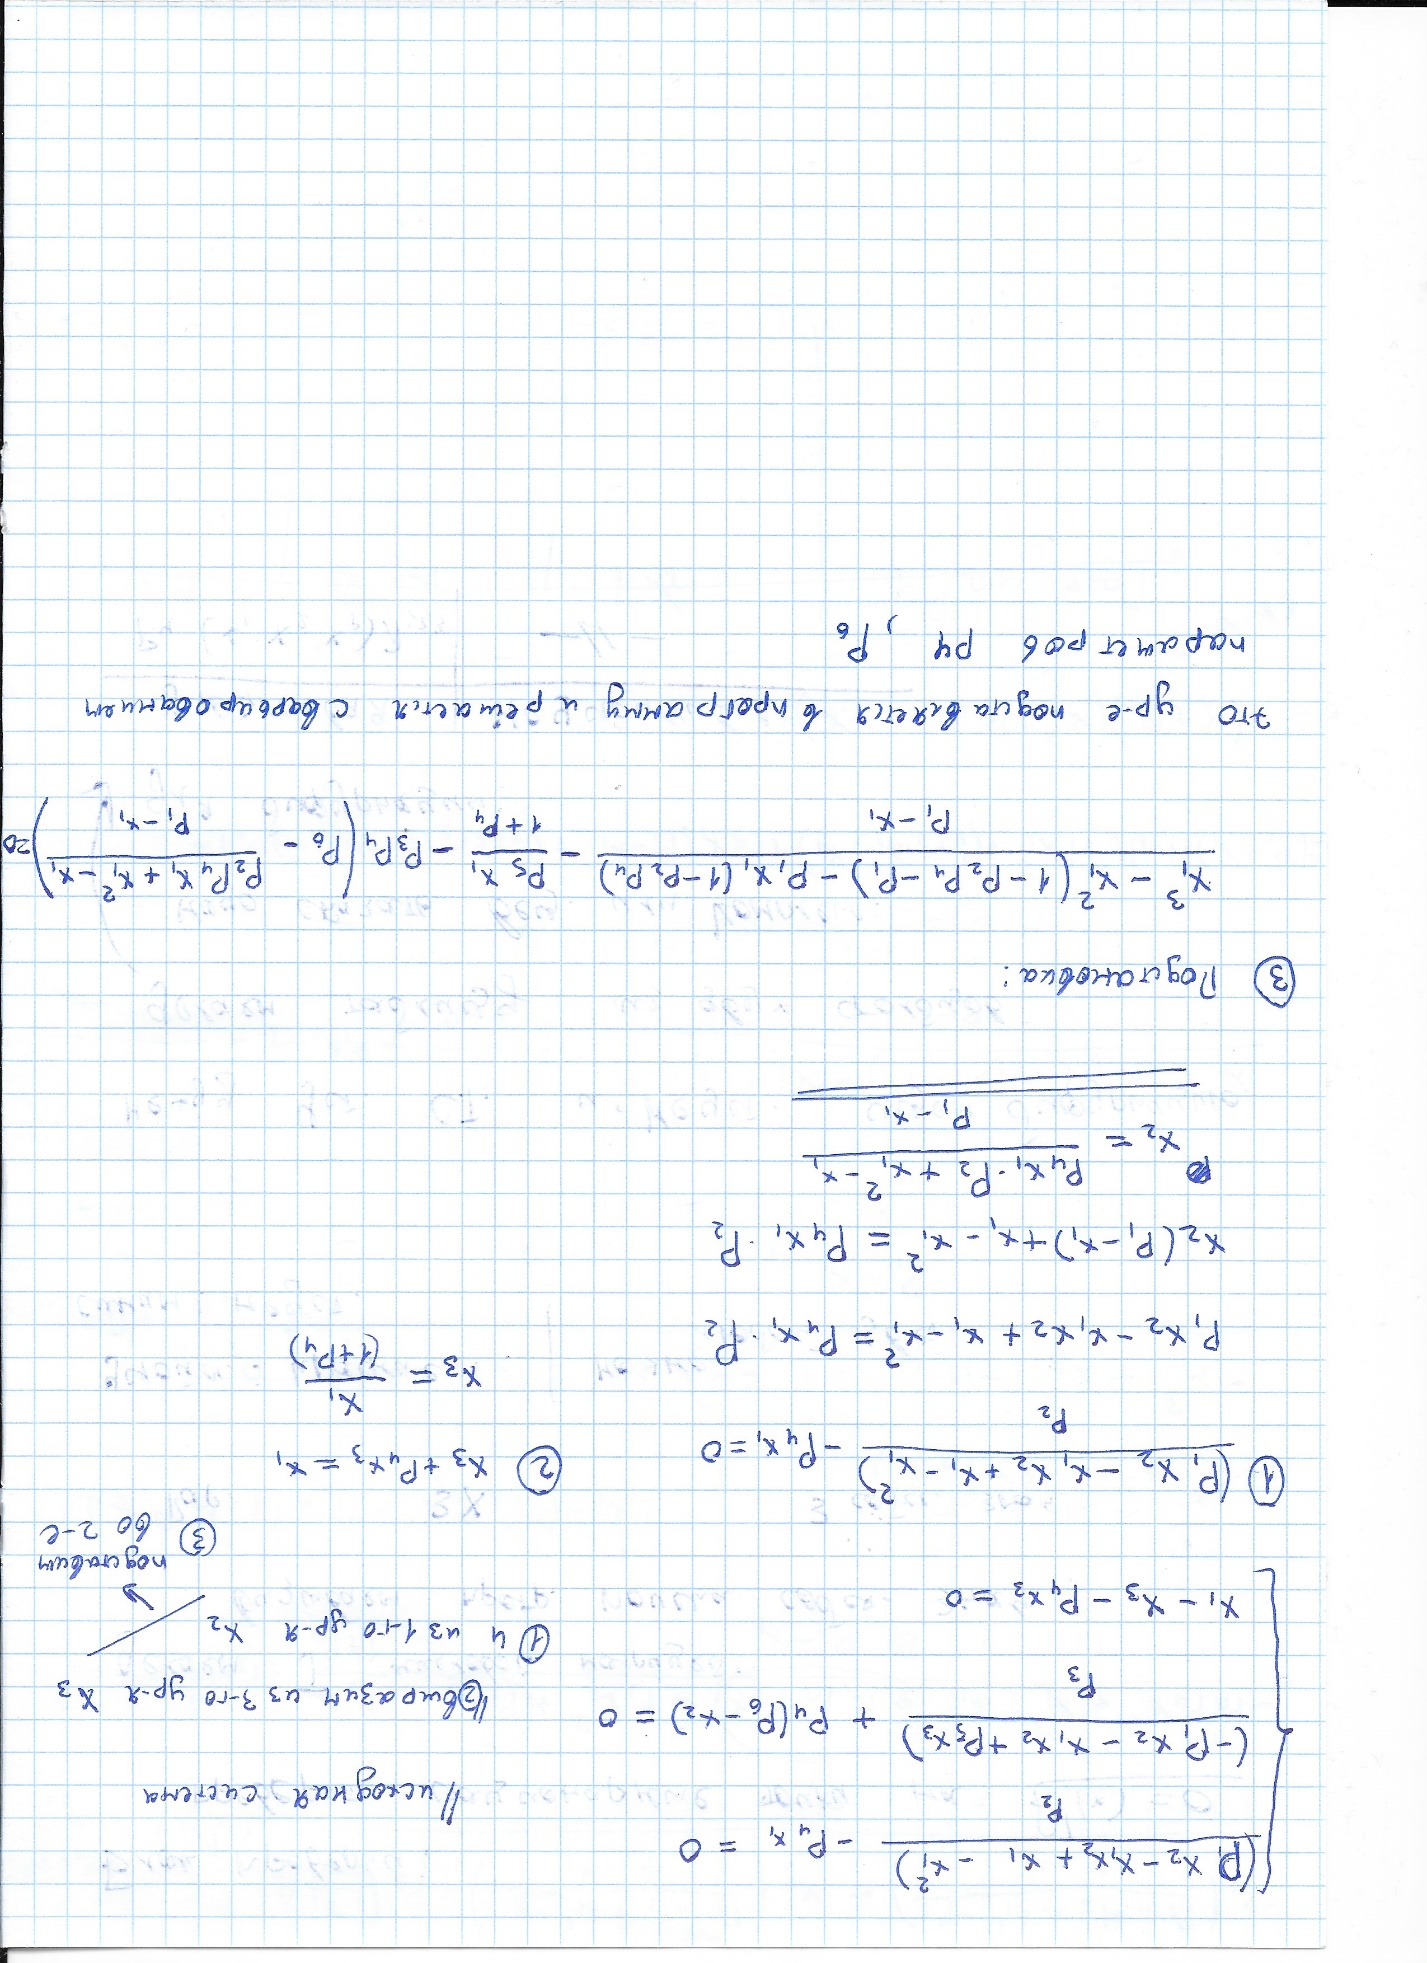 (P₁x₂ − x₁x₂ + x₁ − x₁²)/P₂ − P₄x₁ = 0
// исходная система
(−P₁x₂ − x₁x₂ + P₅x₃)/P₃ + P₄(P₆ − x₂) = 0
// ② выразим из 3-го ур-я x₃
x₁ − x₃ − P₄x₃ = 0
① и из 1-го ур-я x₂
③ подставим
во 2-е
① (P₁x₂ − x₁x₂ + x₁ − x₁²)/P₂ − P₄x₁ = 0
② x₃ + P₄x₃ = x₁
P₁x₂ − x₁x₂ + x₁ − x₁² = P₄x₁·P₂
x₃ = x₁/(1+P₄)
x₂(P₁−x₁) + x₁ − x₁² = P₄x₁·P₂
x₂ = (P₄x₁·P₂ + x₁² − x₁)/(P₁−x₁)
③ Подстановка:
(x₁³ − x₁²(1−P₂P₄−P₁) − P₁x₁(1−P₂P₄))/(P₁−x₁) − P₅x₁/(1+P₄) − P₃P₄(P₆ − (P₂P₄x₁ + x₁² − x₁)/(P₁−x₁)) = 0
это ур-е подставляется в программу и решается с варьированием
параметров P4, P₆